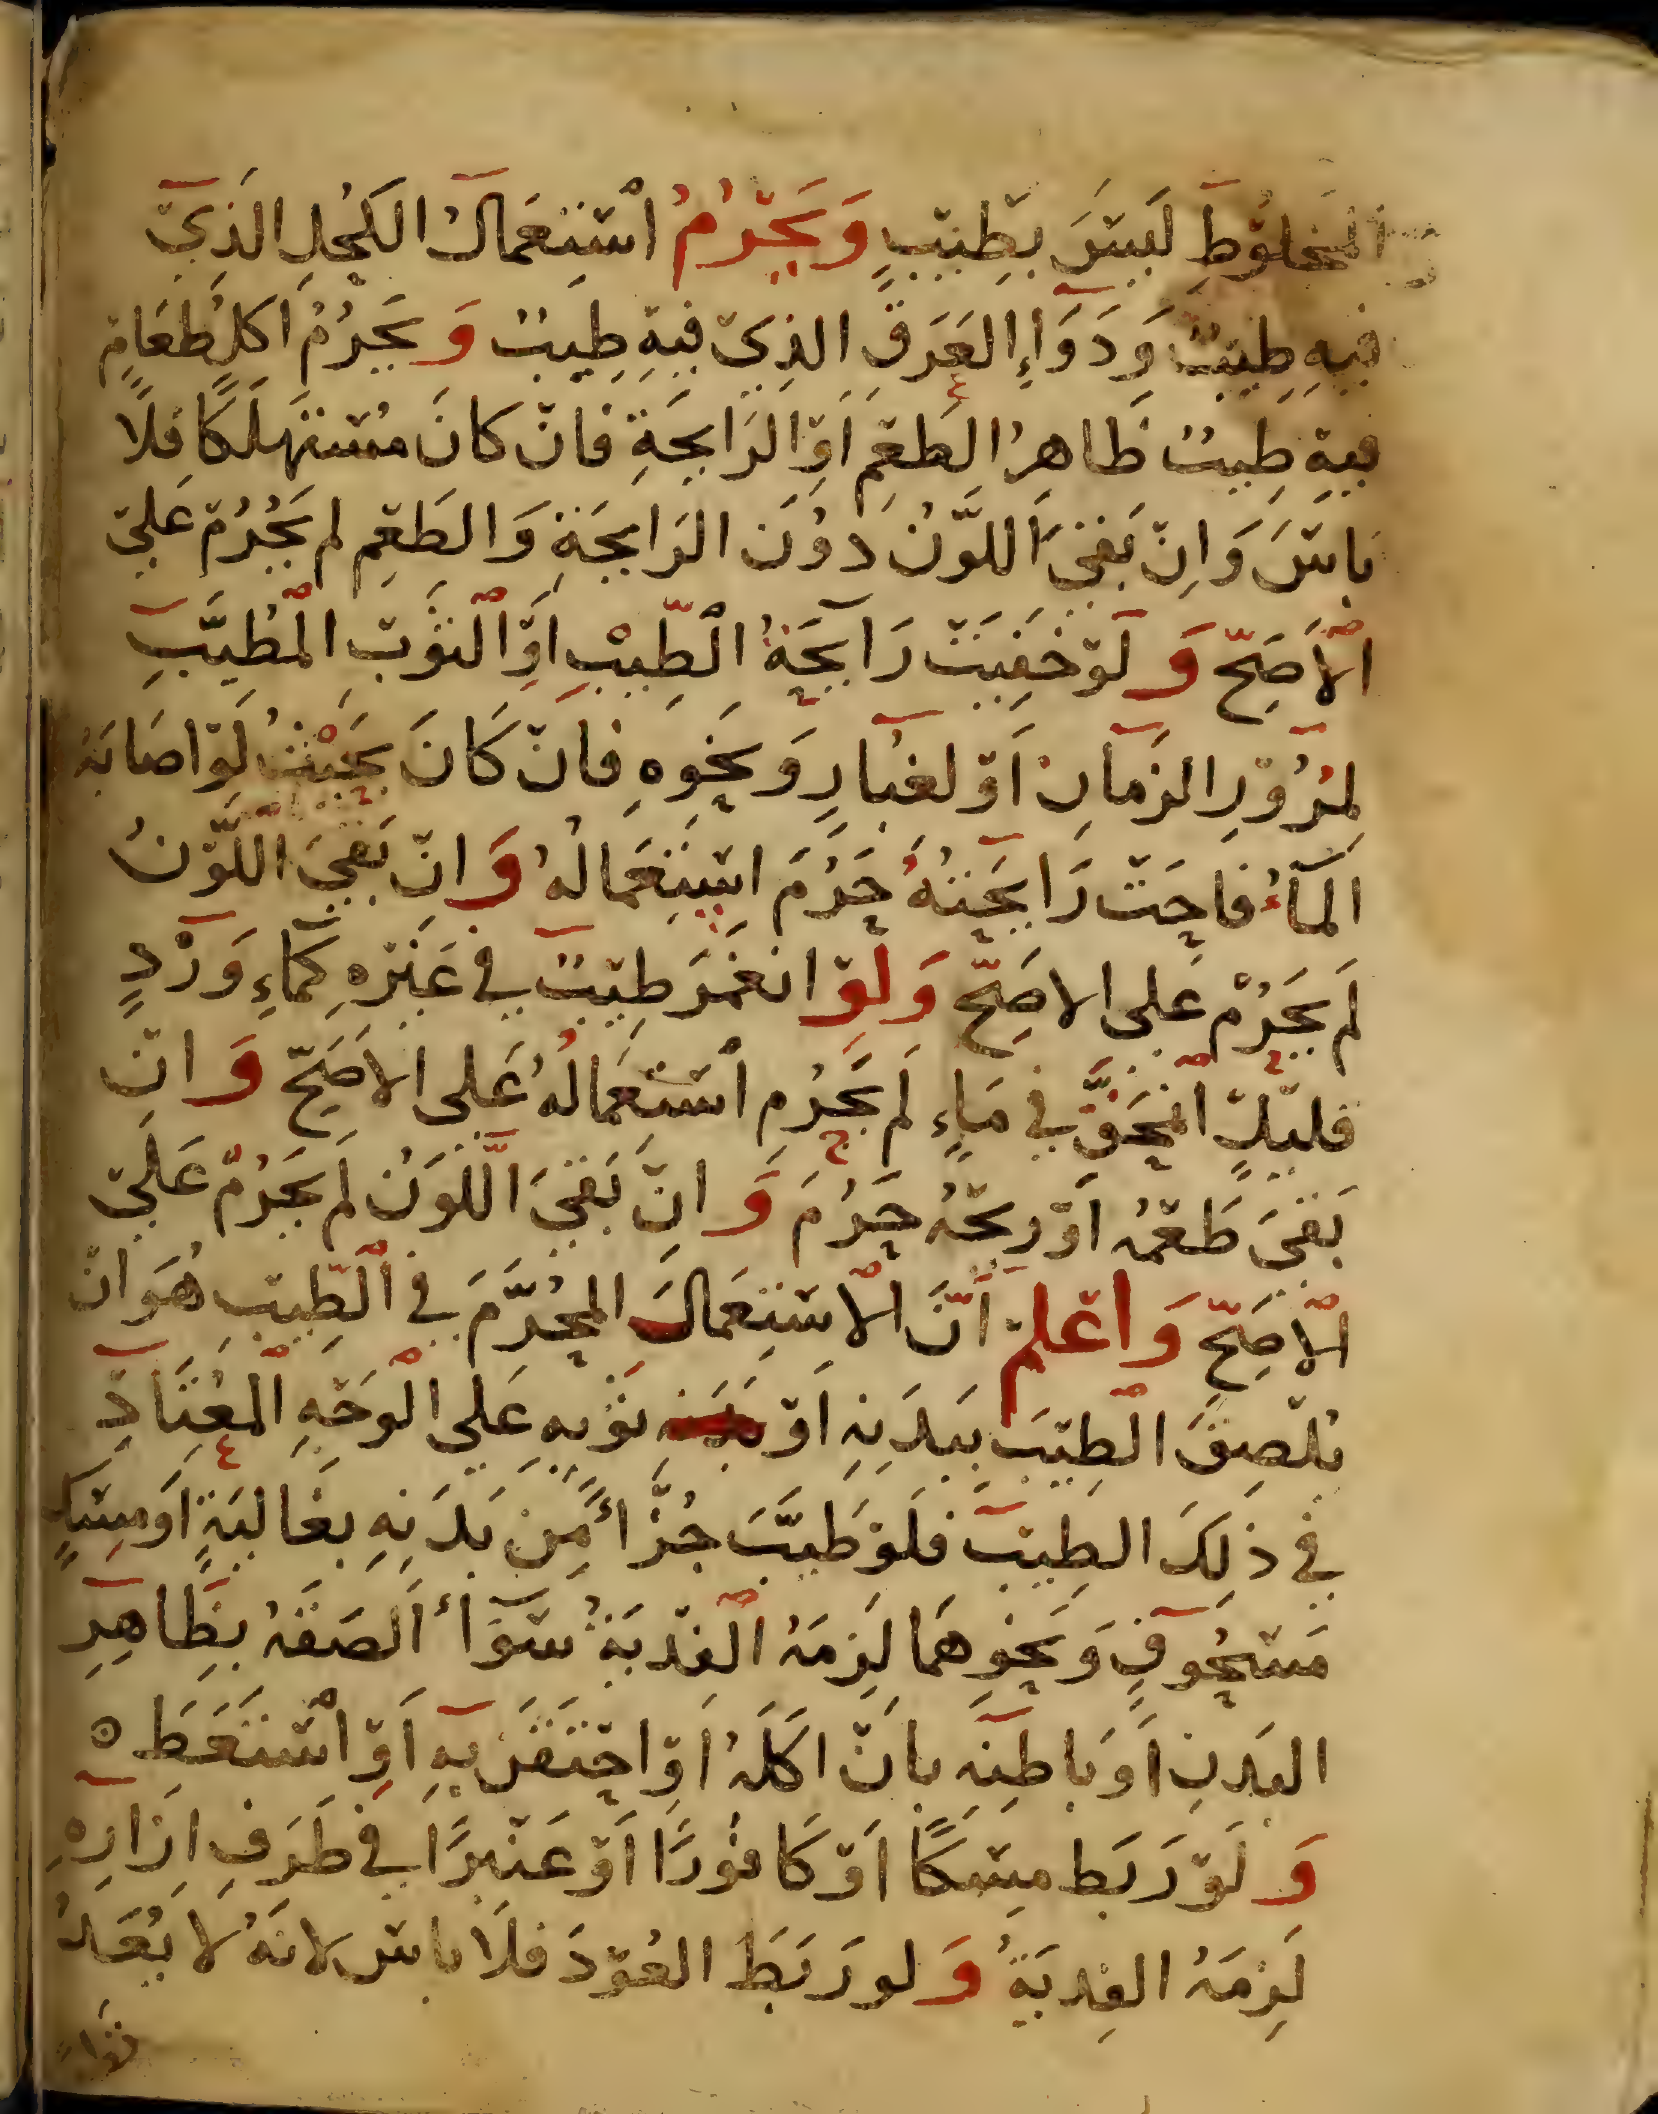 المَخلُوْطِ لَيْسَ بِطِيْبٍ وَيَحْرُمُ اسْتِعْمَالُ الكُحْلِ الذِيْ
فِيهِ طِيْبٌ وَدَوَاءِ العَرَقِ الذِيْ فِيْهِ طِيْبٌ وَيَحْرُمُ اكلُ طَعَامٍ
فِيْهِ طِيْبٌ ظَاهِرُ الطَعْمِ اَوِ الرَايحَةِ فَانْ كانَ مُسْتَهلَكًا فَلَا
بَاسَ وَاِنْ بَقيَ اللَّوْنُ دُوْنَ الرَايحَةِ وَالطَعْمِ لم يَحْرُمْ عَليْ
الْاَصَحِّ وَلَوْ خَفِيَتْ رَايحَةُ الْطِّيْبِ اَوِ الْثَوْبِ الْمُطَيَّبِ
لِمُرُوْرِ الزَمَانِ اَوْ لغُبَارٍ وَنحْوِهِ فَانْ كَانَ بِحَيْثُ لَوْ اصَابَهُ
المَآءُ فَاحَتْ رَايحَتُهُ حَرُمَ اسْتِعْمَالُهُ وَاِنْ بَقِيَ اللَّوْنُ
لَم يَحْرُمْ عَلى الاصَحِّ وَلَوِ انْغَمَرَ طِيْبٌ فِي غَيْرِهِ كَمَاءِ وَرْدٍ
قَلِيْلٍ انْمَحَقَ فِي مَاءٍ لَم يَحْرُمِ اسْتِعْمَالُهُ عَلى الاَصَحِّ وَاِنْ
بَقيَ طَعْمُهُ اَوْ رِيْحُهُ حَرُمَ وَاِنْ بَقيَ اللَّوْنُ لَم يَحْرُمْ عَلَيْ
الْاَصَحِّ وَاعْلَمْ اَنَّ الْاسْتِعْمَالَ المحُرَّمَ فِي الْطِّيْبِ هُوَ انْ
يُلْصِقَ الْطِيْبَ بِبَدَنِهِ اَوْ ثَوْبِهِ عَلى الْوَجْهِ الْمُعْتَادِ
فِي ذلِكَ الطِيْبِ فَلَوْ طَيَّبَ جُزْأً مِنْ بَدَنِهِ بِغَالِيَةٍ اَوْ مِسْكٍ
مَسْحُوْقٍ وَنحْوِهمَا لَزِمَهُ الْفِدْيَةُ سَوَاأ اَلصَقَهُ بِظَاهِرِ
البَدَنِ اَوْ بَاطِنِهِ بِانْ اكَلَهُ اَوِ احْتَقَنَ بِهِ اَوِ اسْتَعَطَ ه
وَلَوْ رَبَط مِسْكًا اَوْ كَافُوْرًا اَوْ عَنْبَرًا فِي طَرَفِ اِزَارِهِ
لَزِمَهُ الفِديَةُ وَلو رَبَطَ العُوْدَ فَلَا بَاسَ لانَهُ لا يُعَدُّ